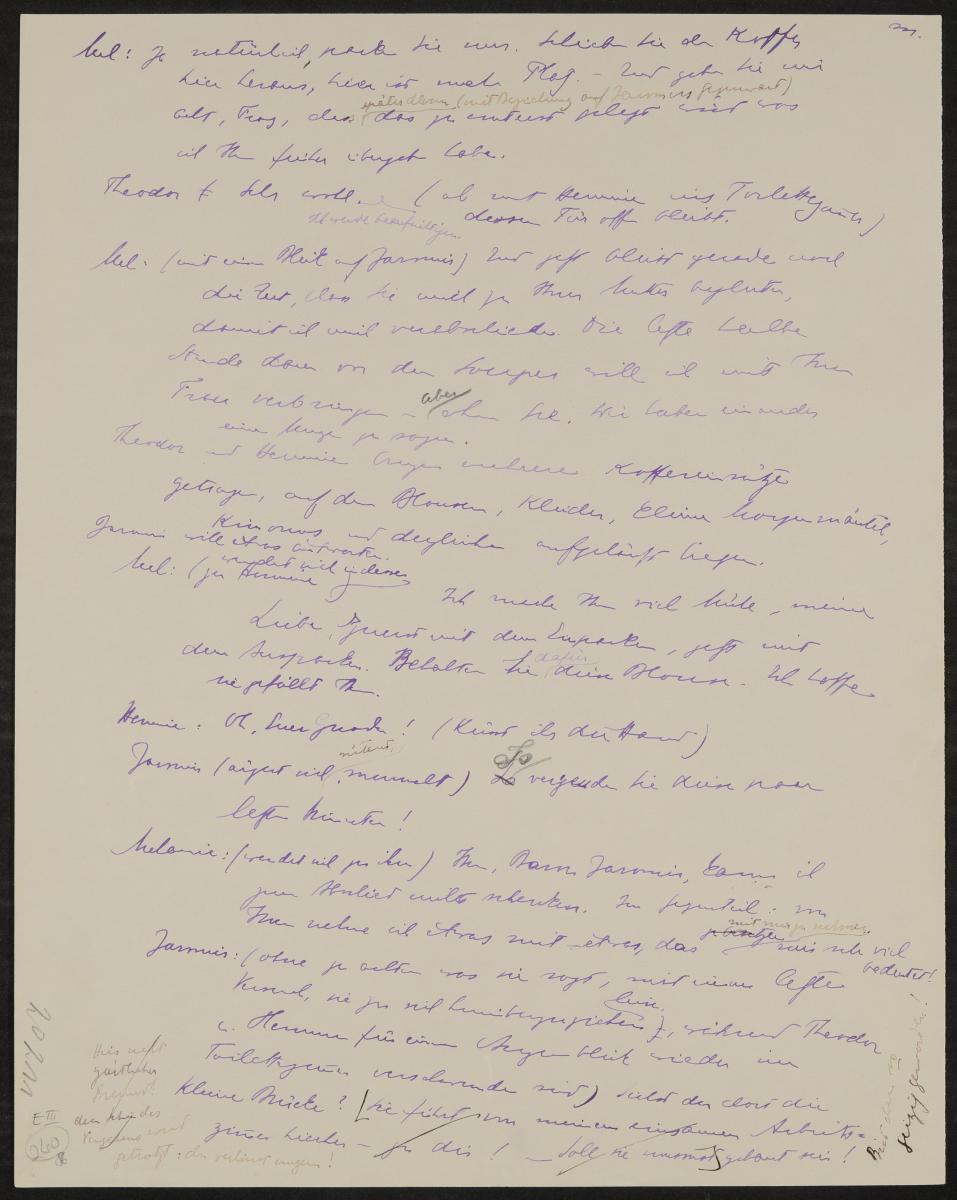 m.
Mel: Ja natürlich, packen Sie nur. Schicken Sie den Koffer
hier heraus, hier ist mehr Platz. – Und geben Sie mir
später dann (mit Beziehung auf Jaromirs Gegenwart)
acht, Franz, dass das zu unterst gelegt wird was
ich Ihnen früher übergeben habe.
Theodor: Sehr wohl. (ab mit Hermine ins Toilettezimmer)
dessen Tür offen bleibt.
Mel: (mit einem Blick auf Jaromir) Und jetzt bleibt gerade noch
die Zeit, dass Sie mich zu Ihrer Mutter begleiten,
damit ich mich verabschiede. Die letzte halbe
Stunde dann vor dem Souper will ich mit Ihrer
Frau verbringen – aber ohne Sie. Wir haben einander
eine Menge zu sagen.
Theodor und Hermine bringen mehrere Koffereinsätze
getragen, auf denen Blousen, Kleider, kleine Morgenmäntel,
Kimonos und dergleichen aufgehäuft liegen.
Jaromir will etwas antworten.
Mel: (zu Hermine wendet sich indessen)
Ich mache Ihnen viel Mühe, meine
Liebe, zuerst mit dem Einpacken, jetzt mit
dem Auspacken. Behalten Sie dafür diese Blouse. Ich hoffe
sie gefällt Ihnen.
Hermine: Oh, Euer Gnaden! (küsst ihr die Hand)
Jaromir (ärgert sich, murmelt) So vergeuden Sie diese paar
letzten Minuten!
Melanie: (wendet sich zu ihm) Ihnen, Baron Jaromir, kann ich
zum Abschied nichts schenken. Im Gegenteil: von
Ihnen nehme ich etwas mit – etwas, das mir sehr viel
mit mir zu nehmen
bedeutet!
Jaromir: (ohne zu achten was sie sagt, mit einem letzten
Versuch, sie zu sich herüberzuziehen, leise, während Theodor
u. Hermine für einen Augenblick wieder im
Toilettezimmer verschwunden sind) Siehst du dort die
kleine Brücke? [Sie führt von meinem einsamen Arbeits-
zimmer hierher – zu dir! – Soll sie umsonst gebaut sein!
Bist du
geizig geworden!
E III
260